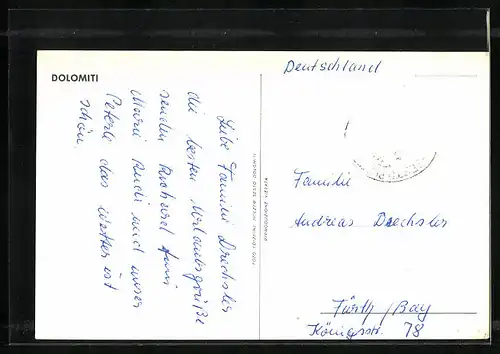 DOLOMITI
Liebe Familie Drechsler
die besten Urlaubsgrüße
senden
Maria Rudi und unser
Peterle das Wetter ist
schön.
Deutschland
Familie
Andreas Drechsler
Fürth / Bay
Königsstr. 78